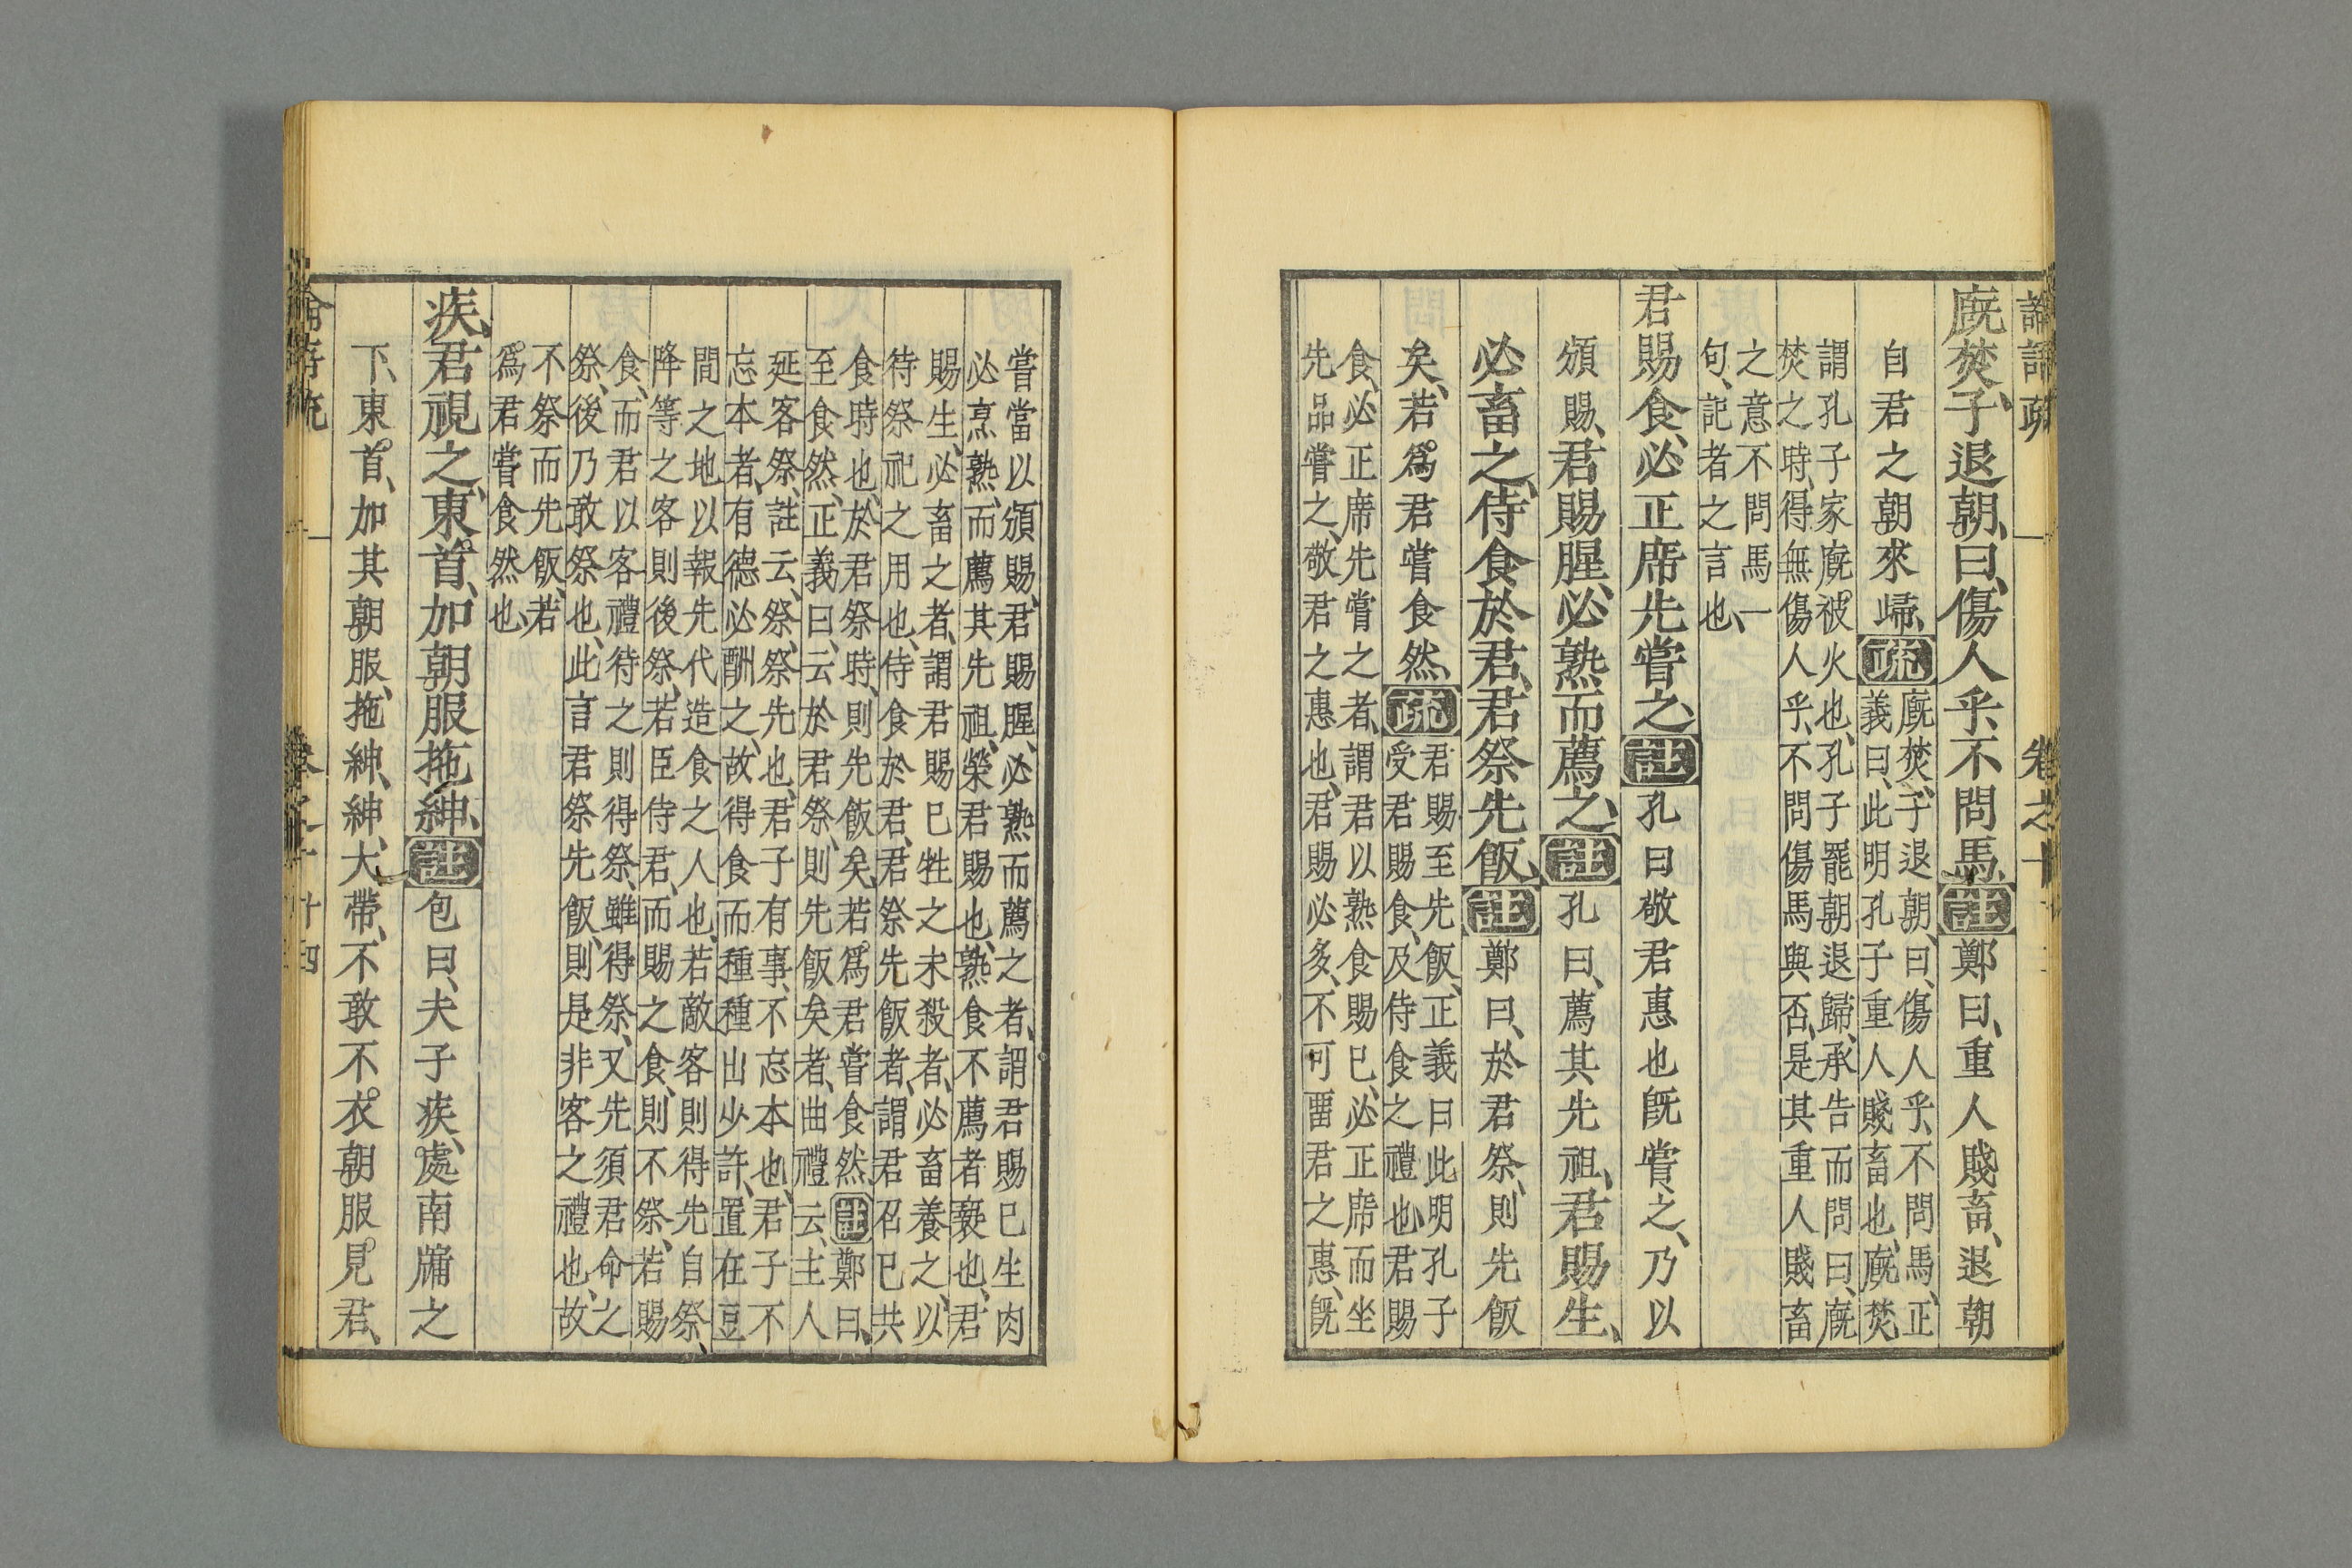 論語疏　卷之十
廐焚、子退朝、曰、傷人乎、不問馬、註鄭曰、重人賤畜、退朝
自君之朝來歸、疏廐焚、子退朝、曰、傷人乎、不問馬、正
義曰、此明孔子重人賤畜也、廐焚
謂孔子家廐被火也、孔子罷朝退歸、承告而問曰、廐
焚之時、得無傷人乎、不問傷馬與否、是其重人賤畜
之意不問馬一
句、記者之言也、
君賜食、必正席先嘗之、註孔曰敬君惠也旣嘗之、乃以
頒賜、君賜腥、必熟而薦之、註孔曰、薦其先祖、君賜生、
必畜之、侍食於君、君祭先飯、註鄭曰、於君祭、則先飯
矣、若爲君嘗食然、疏君賜至先飯、正義曰此明孔子
受君賜食、及侍食之禮也、君賜
食、必正席先嘗之者、謂君以熟食賜已、必正席而坐
先品嘗之、敬君之惠也、君賜必多、不可畱君之惠、旣
嘗當以頒賜、君賜腥、必熟而薦之者、謂君賜已生肉
必烹熟、而薦其先祖、榮君賜也、熟食不薦者褻也、君
賜生、必畜之者、謂君賜已牲之未殺者、必畜養之、以
待祭祀之用也、侍食於君、君祭先飯者、謂君召已共
食時也、於君祭時、則先飯矣、若爲君嘗食然、註鄭曰、
至食然、正義曰、云於君祭、則先飯矣者、曲禮云、主人
延客祭、註云、祭、祭先也、君子有事、不忘本也、君子不
忘本者、有德必酬之、故得食而種種出少許、置在豆
間之地以報先代造食之人也、若敵客則得先自祭、
降等之客則後祭、若臣侍君、而賜之食、則不祭、若賜
食、而君以客禮待之則得祭、雖得祭、又先須君命之
祭、後乃敢祭也、此言君祭先飯、則是非客之禮也、故
不祭而先飯、若
爲君嘗食然也、
疾、君視之、東首、加朝服拖紳、註包曰、夫子疾、處南牖之
下、東首、加其朝服、拖紳、紳、大帶、不敢不衣朝服見君、
卷之十　十四